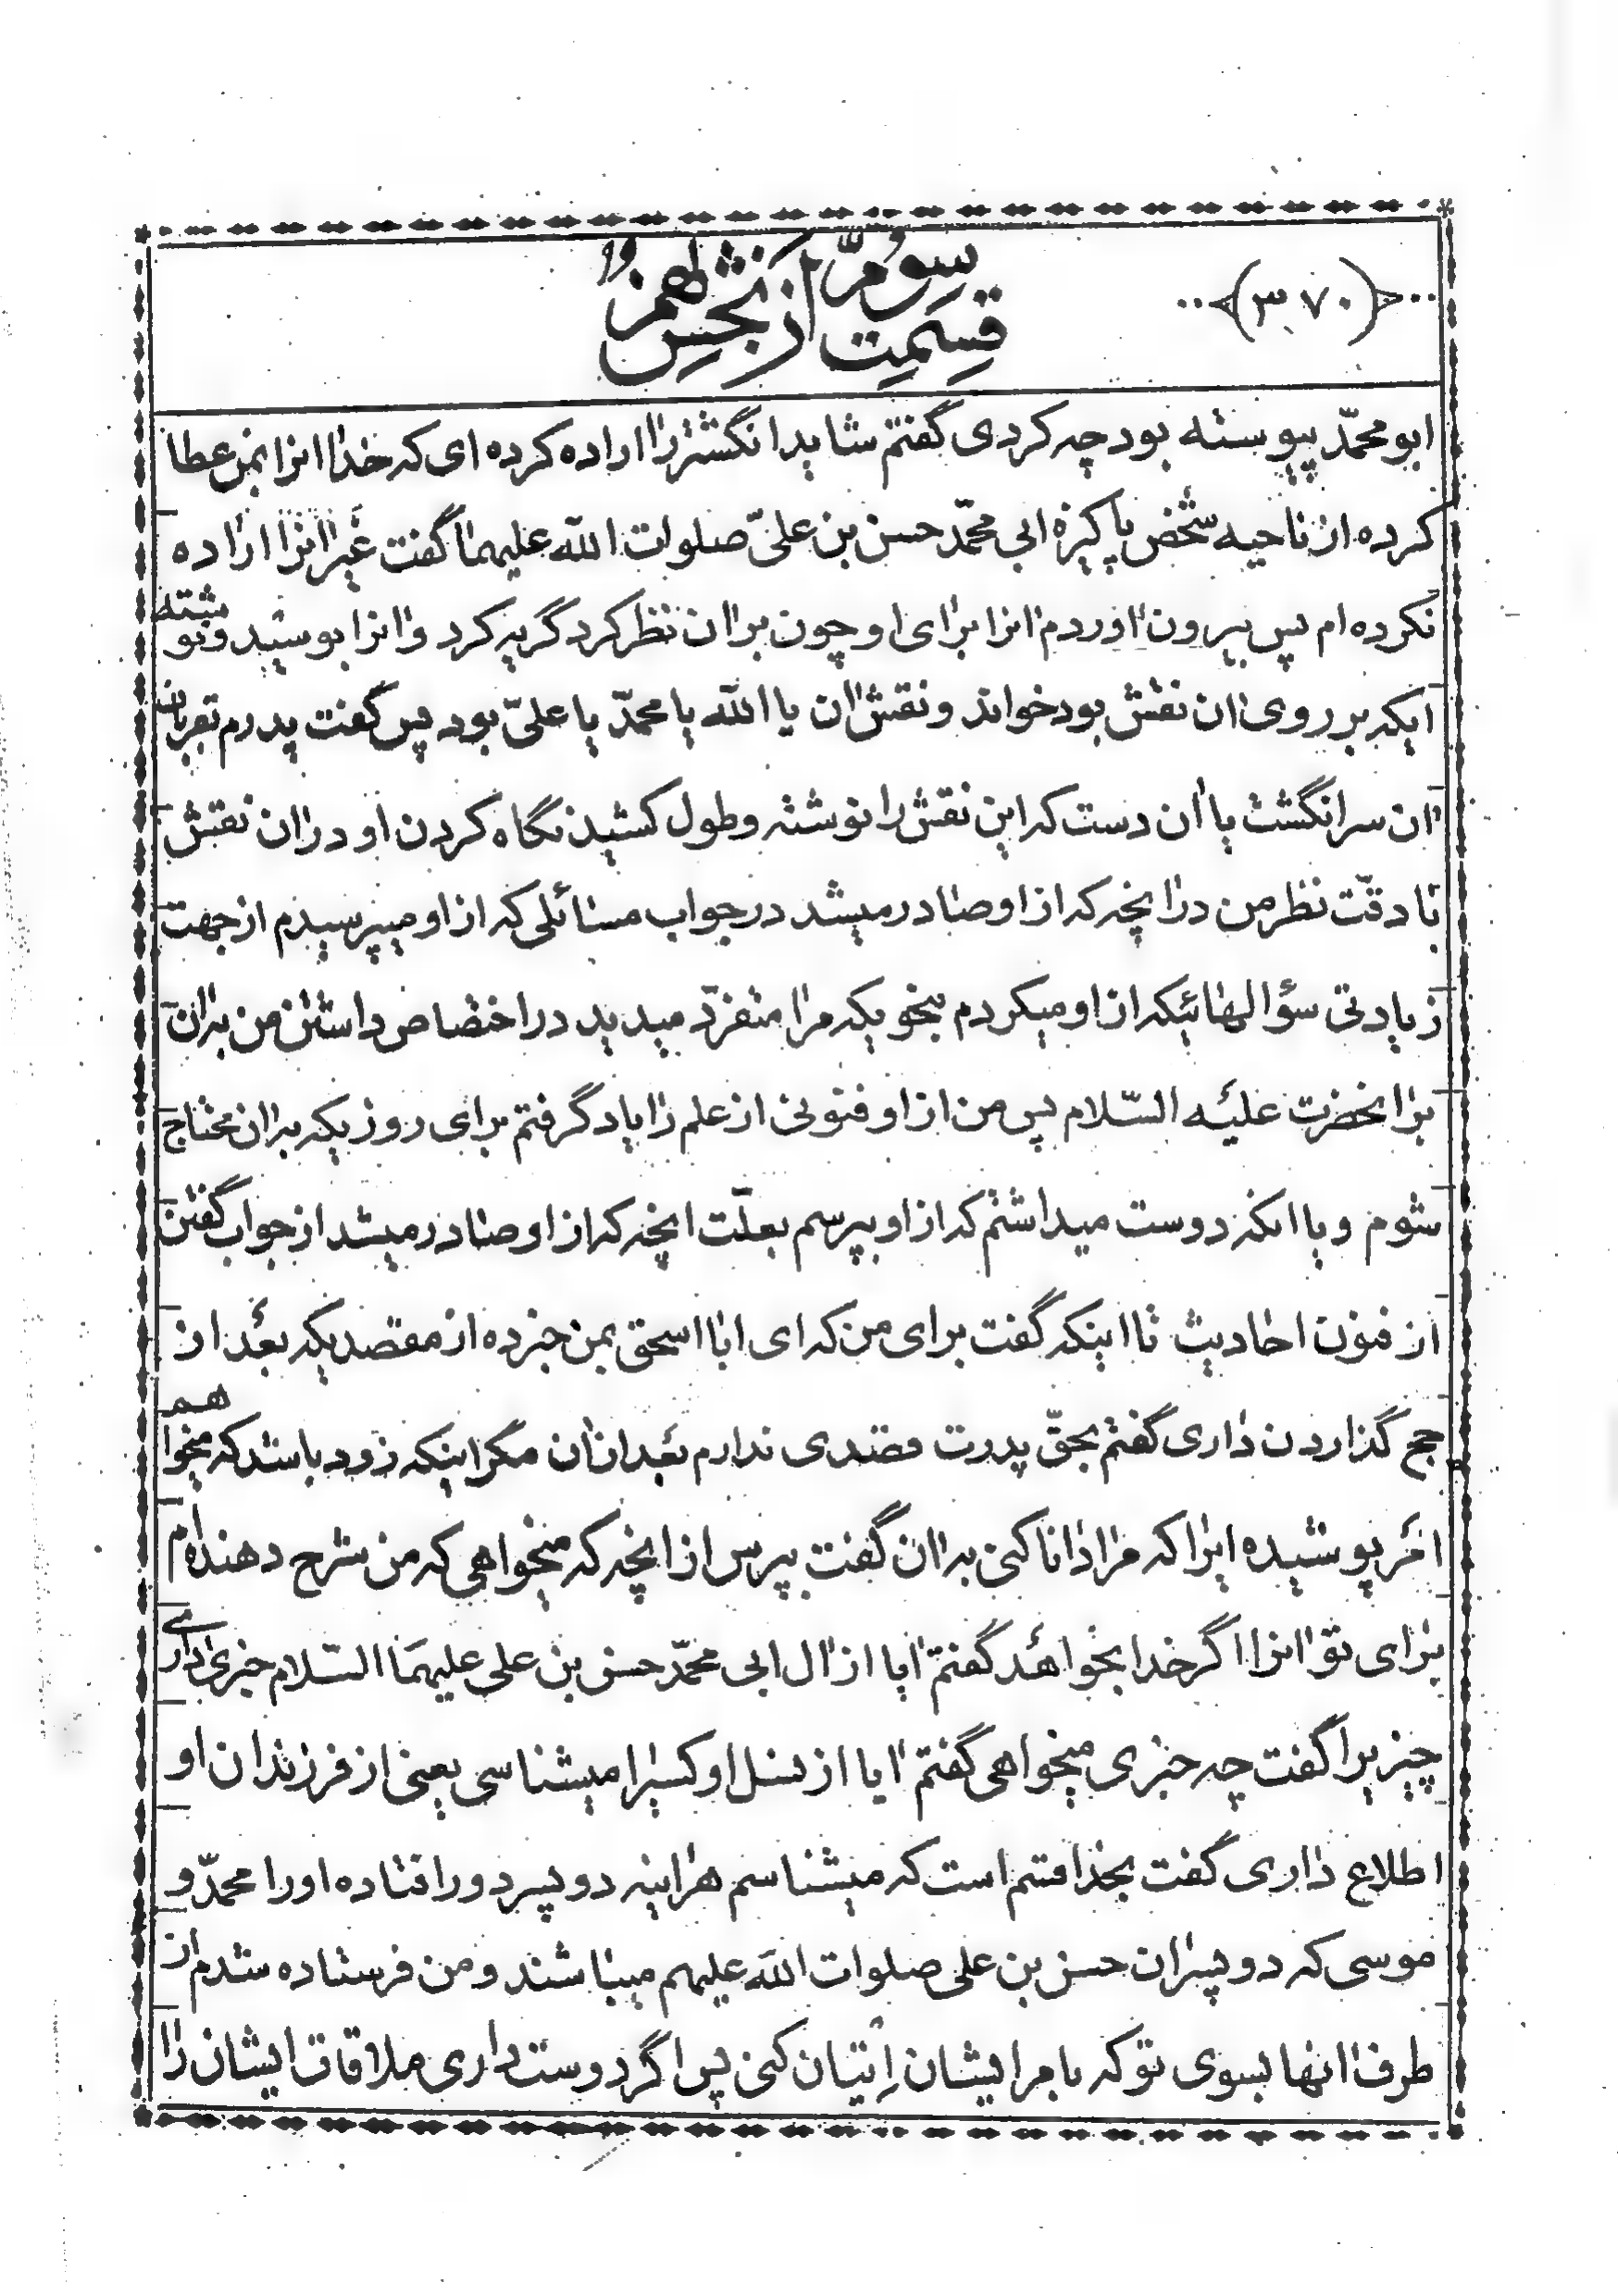 ﴿۳۷۰﴾
قسمت سوّم از بخش نهم
ابو محمّد پیوسته بود چه کردی گفتم شاید انگشتر را اراده کرده ای که خدا انرا بمن عطا
کرده از ناحیه شخص پاکیزه ابی محمّد حسن بن علیّ صلوات الله علیهما گفت غیر انرا اراده
نکرده ام پس بیرون اوردم انرا برای او چون بر ان نظر کرد گریه کرد و انرا بوسید و نوشته
ایکه بر روی ان نقش بود خواند و نقش ان یا الله یا محمدّ یا علیّ بود پس گفت پدرم بقربان
ان سر انگشت یا ان دست که این نقش را نوشته و طول کشید نگاه کردن او در ان نقش
با دقّت نظر من در انچه که از او صادر میشد در جواب مسائلی که از او میپرسیدم از جهت
زیادتی سؤالهائیکه از او میکردم بنحویکه مرا متفرّد میدید در اختصاص داشتن من بر ان
بر انحضرت علیه السّلام پس من از او فنونی از علم را یاد گرفتم برای روزیکه بدان محتاج
شوم و با انکه دوست میداشتم که از او بپرسم بعلّت انچه که از او صادر میشد از جواب گفتن
از فنون احادیث تا اینکه گفت برای من که ای ابا اسحق بمن خبر ده از مقصدیکه بعد از
حج گذاردن داری گفتم بحقّ پدرت قصدی ندارم بعد از ان مگر اینکه زود باشد که میخواهم
امر پوشیده ایرا که مرا دانا کنی بدان گفت بپرس از انچه که میخواهی که من شرح دهنده ام
برای تو انرا اگر خدا بخواهد گفتم ایا از ال ابی محمّد حسن بن علی علیهما السّلام خبری داری
چیزیرا گفت چه خبری میخواهی گفتم ایا از نسل او کسیرا میشناسی یعنی از فرزندان او
اطلاع داری گفت بخدا قسم است که میشناسم هراینه دو پسر دور افتاده او را محمّد و
موسی که دو پسران حسن بن علی صلوات الله علیهم میباشند و من فرستاده شدم از
طرف انها بسوی تو که بامر ایشان اِتیان کنی پس اگر دوست داری ملاقات ایشان را